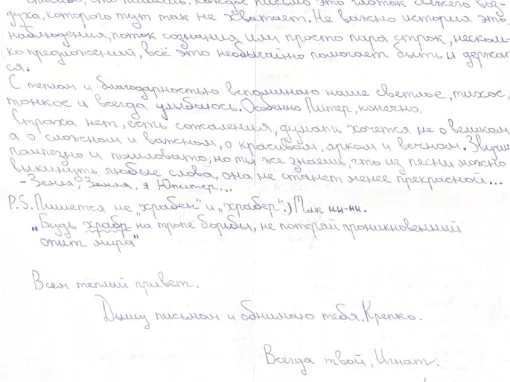 спасибо, что пишешь. Каждое письмо это глоток свежего воз-
духа, которого тут так не хватает. Не важно история это,
наблюдения, поток сознания или просто пара строк, несколь-
ко предложений, всё это необычайно помогает быть и держат
ся.
С теплом и благодарностью вспоминаю наше светлое, тихое,
тонкое и всегда улыбаюсь. Особенно Питер, конечно.
Страха нет, есть сожаления, думать хочется не о великом
а о сложном и важном, о красивом, ярком и вечном. Звучит
помпезно и пошловато, но ты же знаешь, что из песни можно
выкинуть любые слова, она не станет менее прекрасной...
- Земля, Земля, я Юпитер...
P.S. Пишется не „храбен" и „храбер".) Так ни-ни.
„Будь храбр на тропе борьбы, не потеряй проникновенный
опыт мира"
Всем тёплый привет.
Дышу письмом и обнимаю тебя. Крепко.
Всегда твой, Игнат.